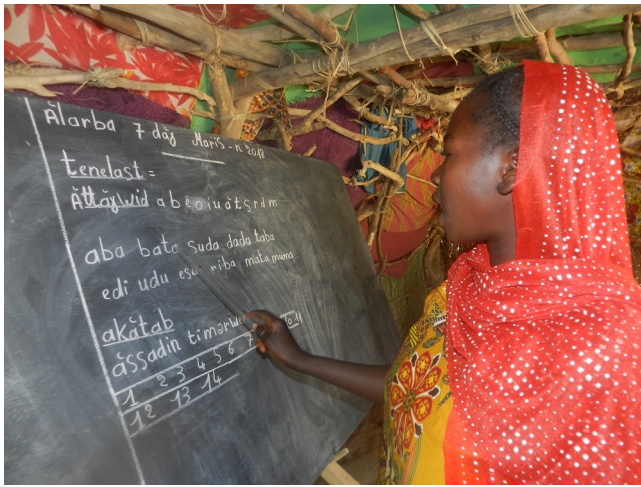 Ălarba 7 dăɣ Maris-n 2018
tenelast =
Ăttăɣwid a b e o i u ă t s r d m
aba bata suda dada taba
edi udu esu riba mata muma
akătab
ăssadin
1 2 3 4 5 6 7 11
12 13 14